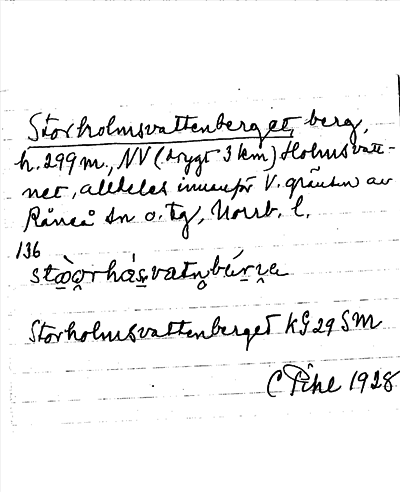 Storholmsvattenberget, berg,
h. 299 m., NV (drygt 3 km) Holmsvatt-
net, alldeles innanför V. gränsen av
Råneå sn o. tg, Norrb. l.
136
Storholmsvattenberget kG 29 SM
C Pihl 1928